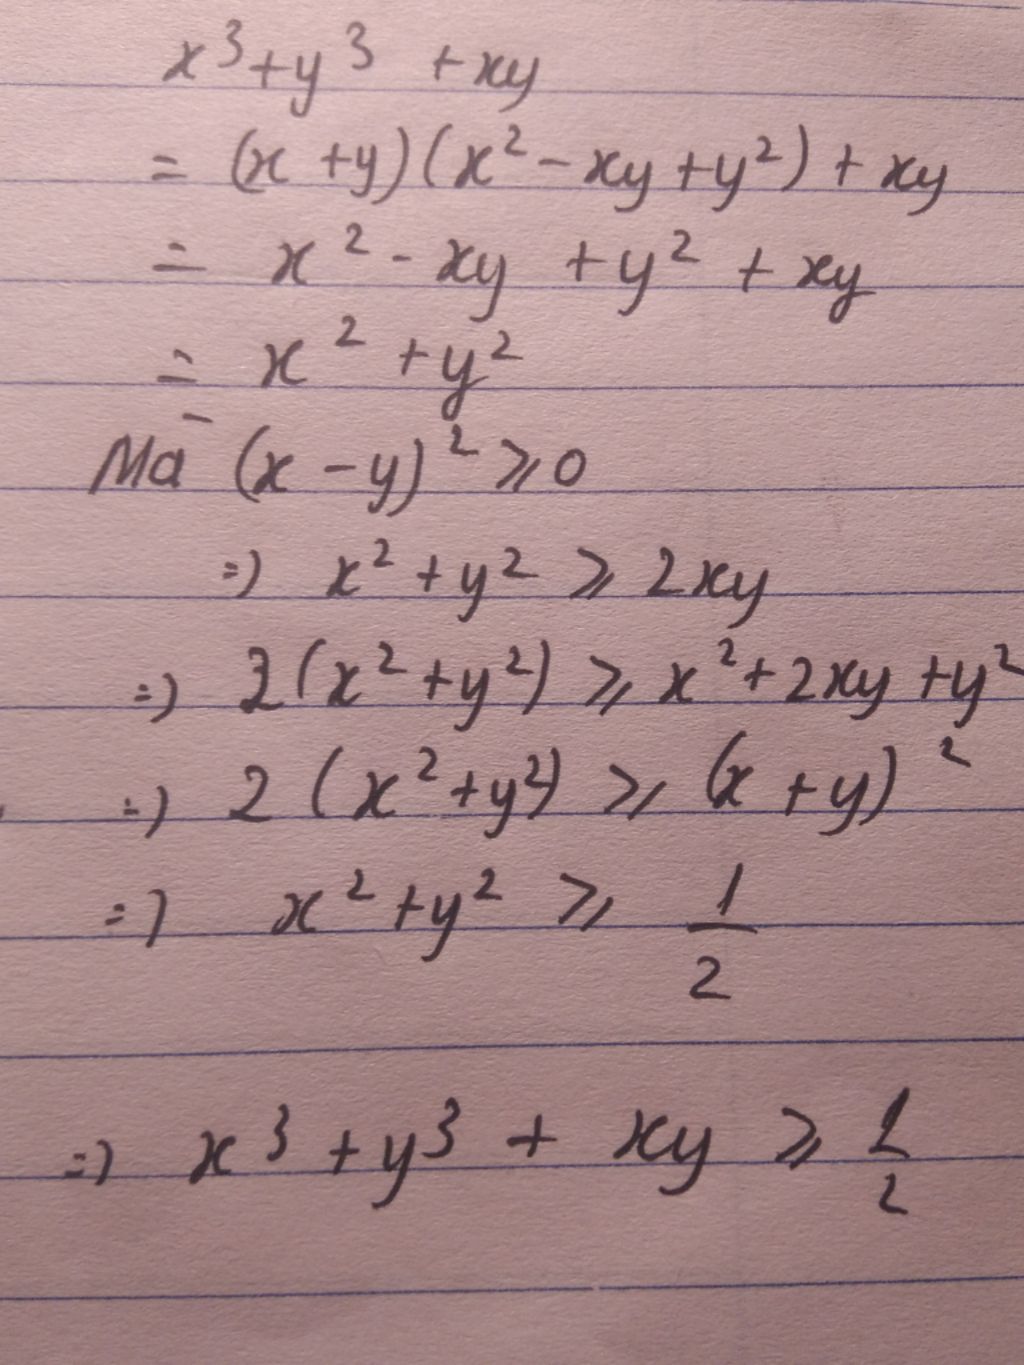 x³+y³ +xy
= (x +y)(x²-xy+y²) + xy
= x²-xy +y² + xy
= x² +y²
Mà (x -y)² ⩾0
=) x² +y² ⩾ 2xy
=) 2(x²+y²) ⩾ x²+2xy +y²
=) 2 (x²+y²) ⩾ (x +y)²
=) x²+y² ⩾ 1/2
=) x³ +y³ + xy ⩾ 1/2